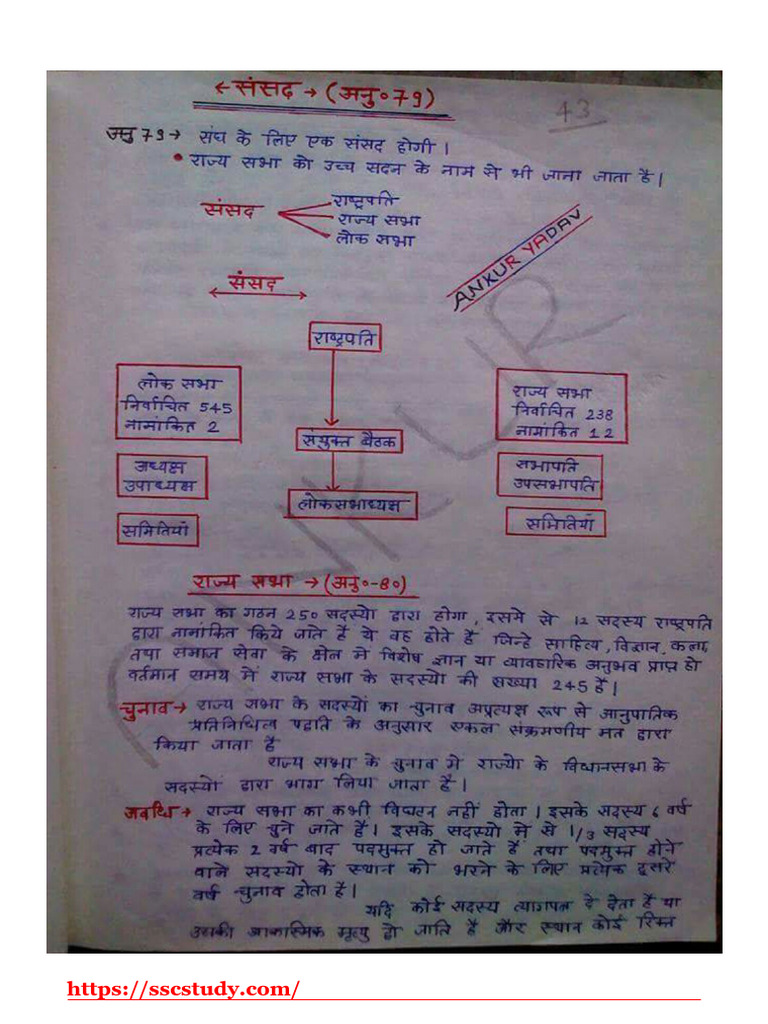 ← संसद → (अनु०79)
43
अनु 79 → संघ के लिए एक संसद होगी।
• राज्य सभा को उच्च सदन के नाम से भी जाना जाता है।
संसद
राष्ट्रपति
राज्य सभा
लोक सभा
ANKUR YADAV
संसद
राष्ट्रपति
लोक सभा
निर्वाचित 545
नामांकित 2
राज्य सभा
निर्वाचित 238
नामांकित 12
संयुक्त बैठक
अध्यक्ष
उपाध्यक्ष
सभापति
उपसभापति
लोकसभाध्यक्ष
समितियाँ
समितियाँ
ANKUR
राज्य सभा → (अनु०-80)
राज्य सभा का गठन 250 सदस्यो द्वारा होगा, इसमे से 12 सदस्य राष्ट्रपति
द्वारा नामांकित किये जाते हैं ये वह होते हैं जिन्हे साहित्य, विज्ञान, कला,
तथा समाज सेवा के क्षेत्र में विशेष ज्ञान या व्यावहारिक अनुभव प्राप्त हो
वर्तमान समय में राज्य सभा के सदस्यो की सख्या 245 हैं।
चुनाव → राज्य सभा के सदस्यों का चुनाव अप्रत्यक्ष रूप से आनुपातिक
प्रतिनिधित्व पद्दति के अनुसार एकल संक्रमणीय मत द्वारा
किया जाता है
राज्य सभा के चुनाव मे राज्यो के विधानसभा के
सदस्यों द्वारा भाग लिया जाता है।
अवधि → राज्य सभा का कभी विघटन नहीं होता। इसके सदस्य 6 वर्ष
के लिए चुने जाते हैं। इसके सदस्यो मे से 1/3 सदस्य
प्रत्येक 2 वर्ष बाद पदमुक्त हो जाते हैं तथा पदमुक्त होने
वाले सदस्यो के स्थान को भरने के लिए प्रत्येक दुसरे
वर्ष चुनाव होता है।
यदि कोई सदस्य त्यागपत्र दे देता है या
उसकी आकास्मिक मृत्यु हो जाति है और स्थान कोई रिक्त
https://sscstudy.com/